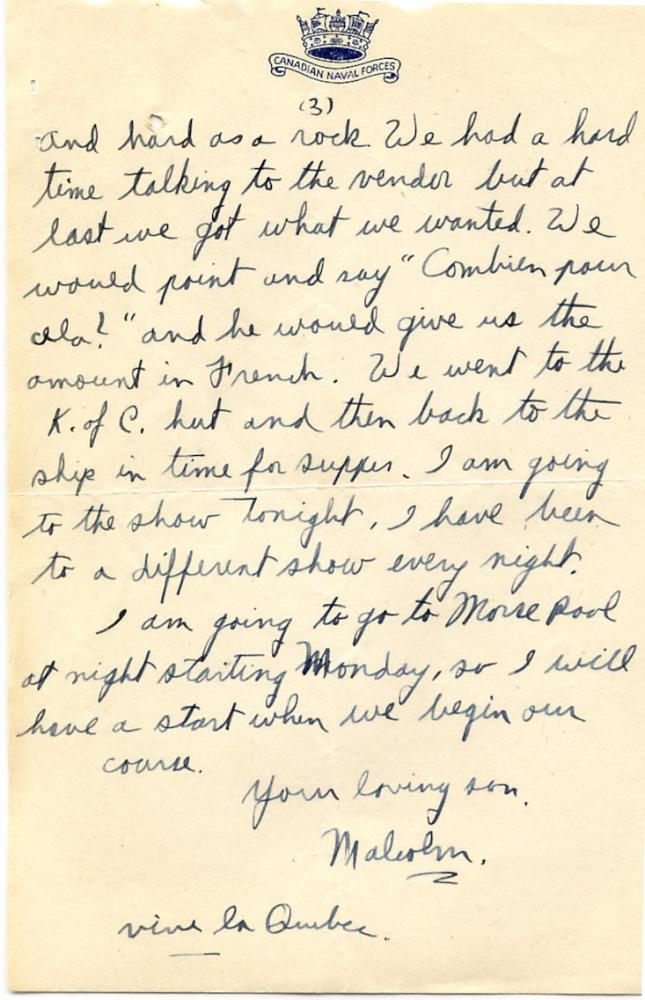 CANADIAN NAVAL FORCES
(3)
and hard as a rock. We had a hard
time talking to the vender but at
last we got what we wanted. We
would point and say "Combien pour
cela?" and he would give us the
amount in French. We went to the
K. of C. hut and then back to the
ship in time for supper. I am going
to the show tonight, I have been
to a different show every night.
I am going to go to Morse Pool
at night starting Monday, so I will
have a start when we begin our
course.
Your loving son,
Malcolm.
vive la Quebec.